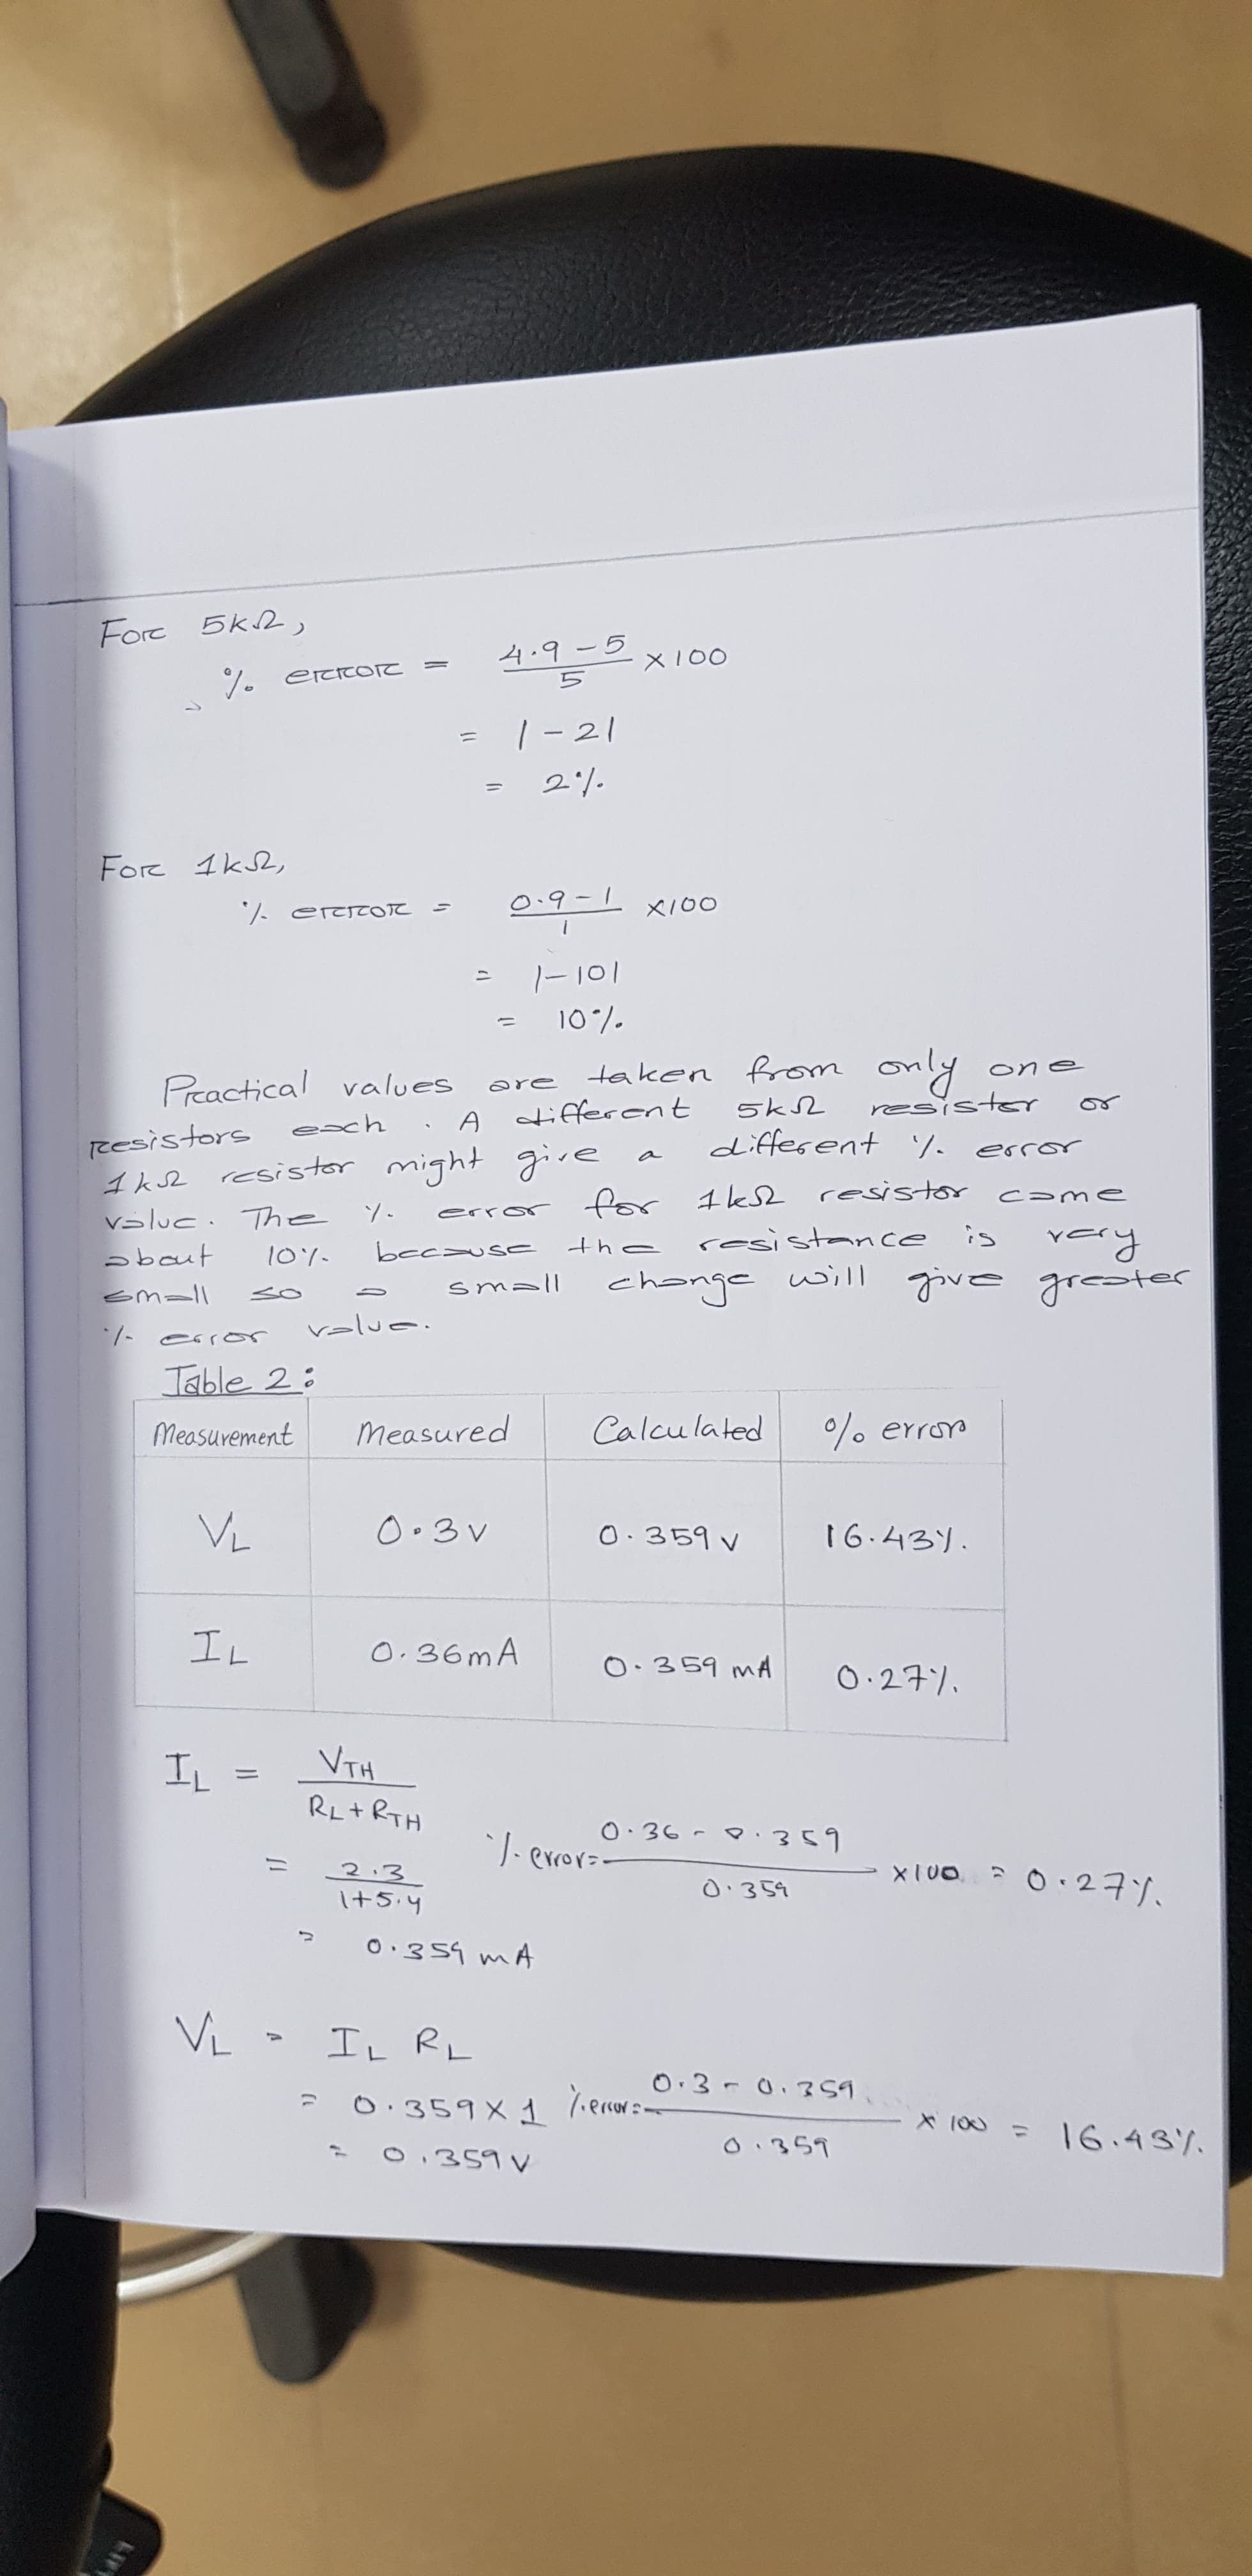 For 5kΩ,
% error = 4.9 - 5 / 5 × 100
= |-2|
= 2%
For 1kΩ,
% error = 0.9 - 1 / 1 × 100
= |-10|
= 10%
Practical values are taken from only one
resistors each. A different 5kΩ resistor or
1kΩ resistor might give a different % error
value. The % error for 1kΩ resistor came
about 10% because the resistance is very
small so a small change will give greater
% error value.
Table 2:
Measurement Measured Calculated % error
VL 0.3v 0.359v 16.43%
IL 0.36mA 0.359 mA 0.27%
IL = VTH / RL + RTH
= 2.3 / 1+5.4
= 0.359 mA
% error = 0.36 - 0.359 / 0.359 × 100 = 0.27%
VL = IL RL
= 0.359 × 1
= 0.359v
% error = 0.3 - 0.359 / 0.359 × 100 = 16.43%